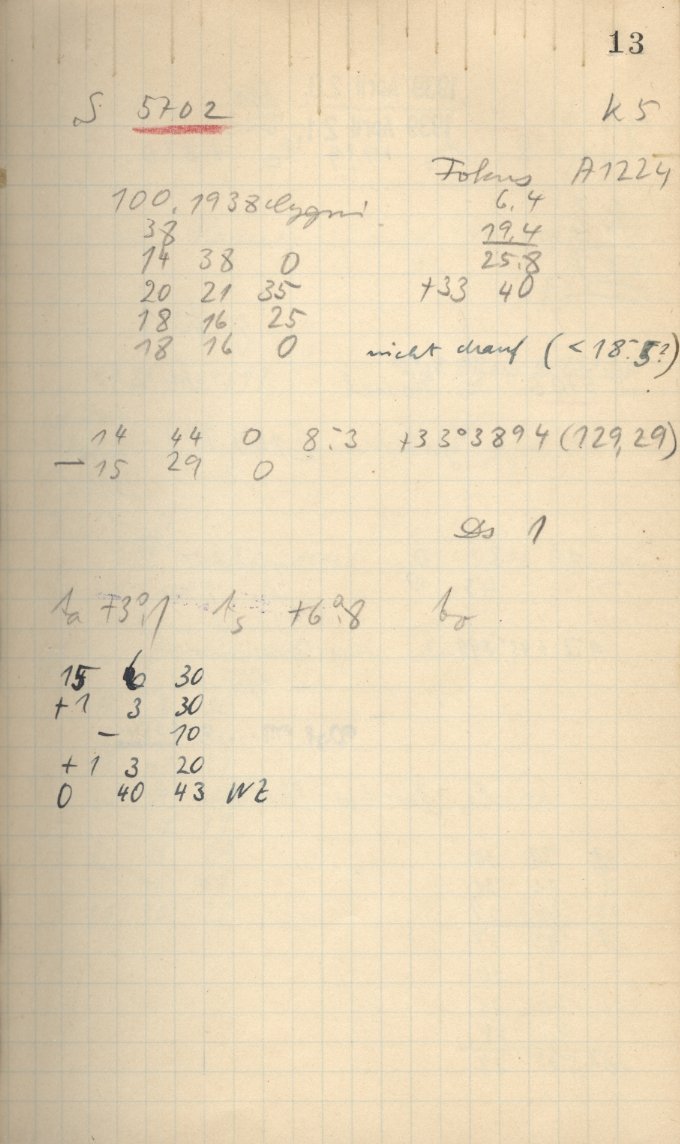 13
S 5702 K 5
Fokus A1224
100.1938 Cygni 6.4
38 19.4
14 38 0 25.8
20 21 35 +33 40
18 16 25
18 16 0 nicht drauf (<18.5?)
14 44 0 8.3 +33°3894 (129,29)
- 15 29 0
Ds 1
ta +3°.1 ts +6°.8 to
15 6 30
+1 3 30
- 10
+1 3 20
0 40 43 WZ